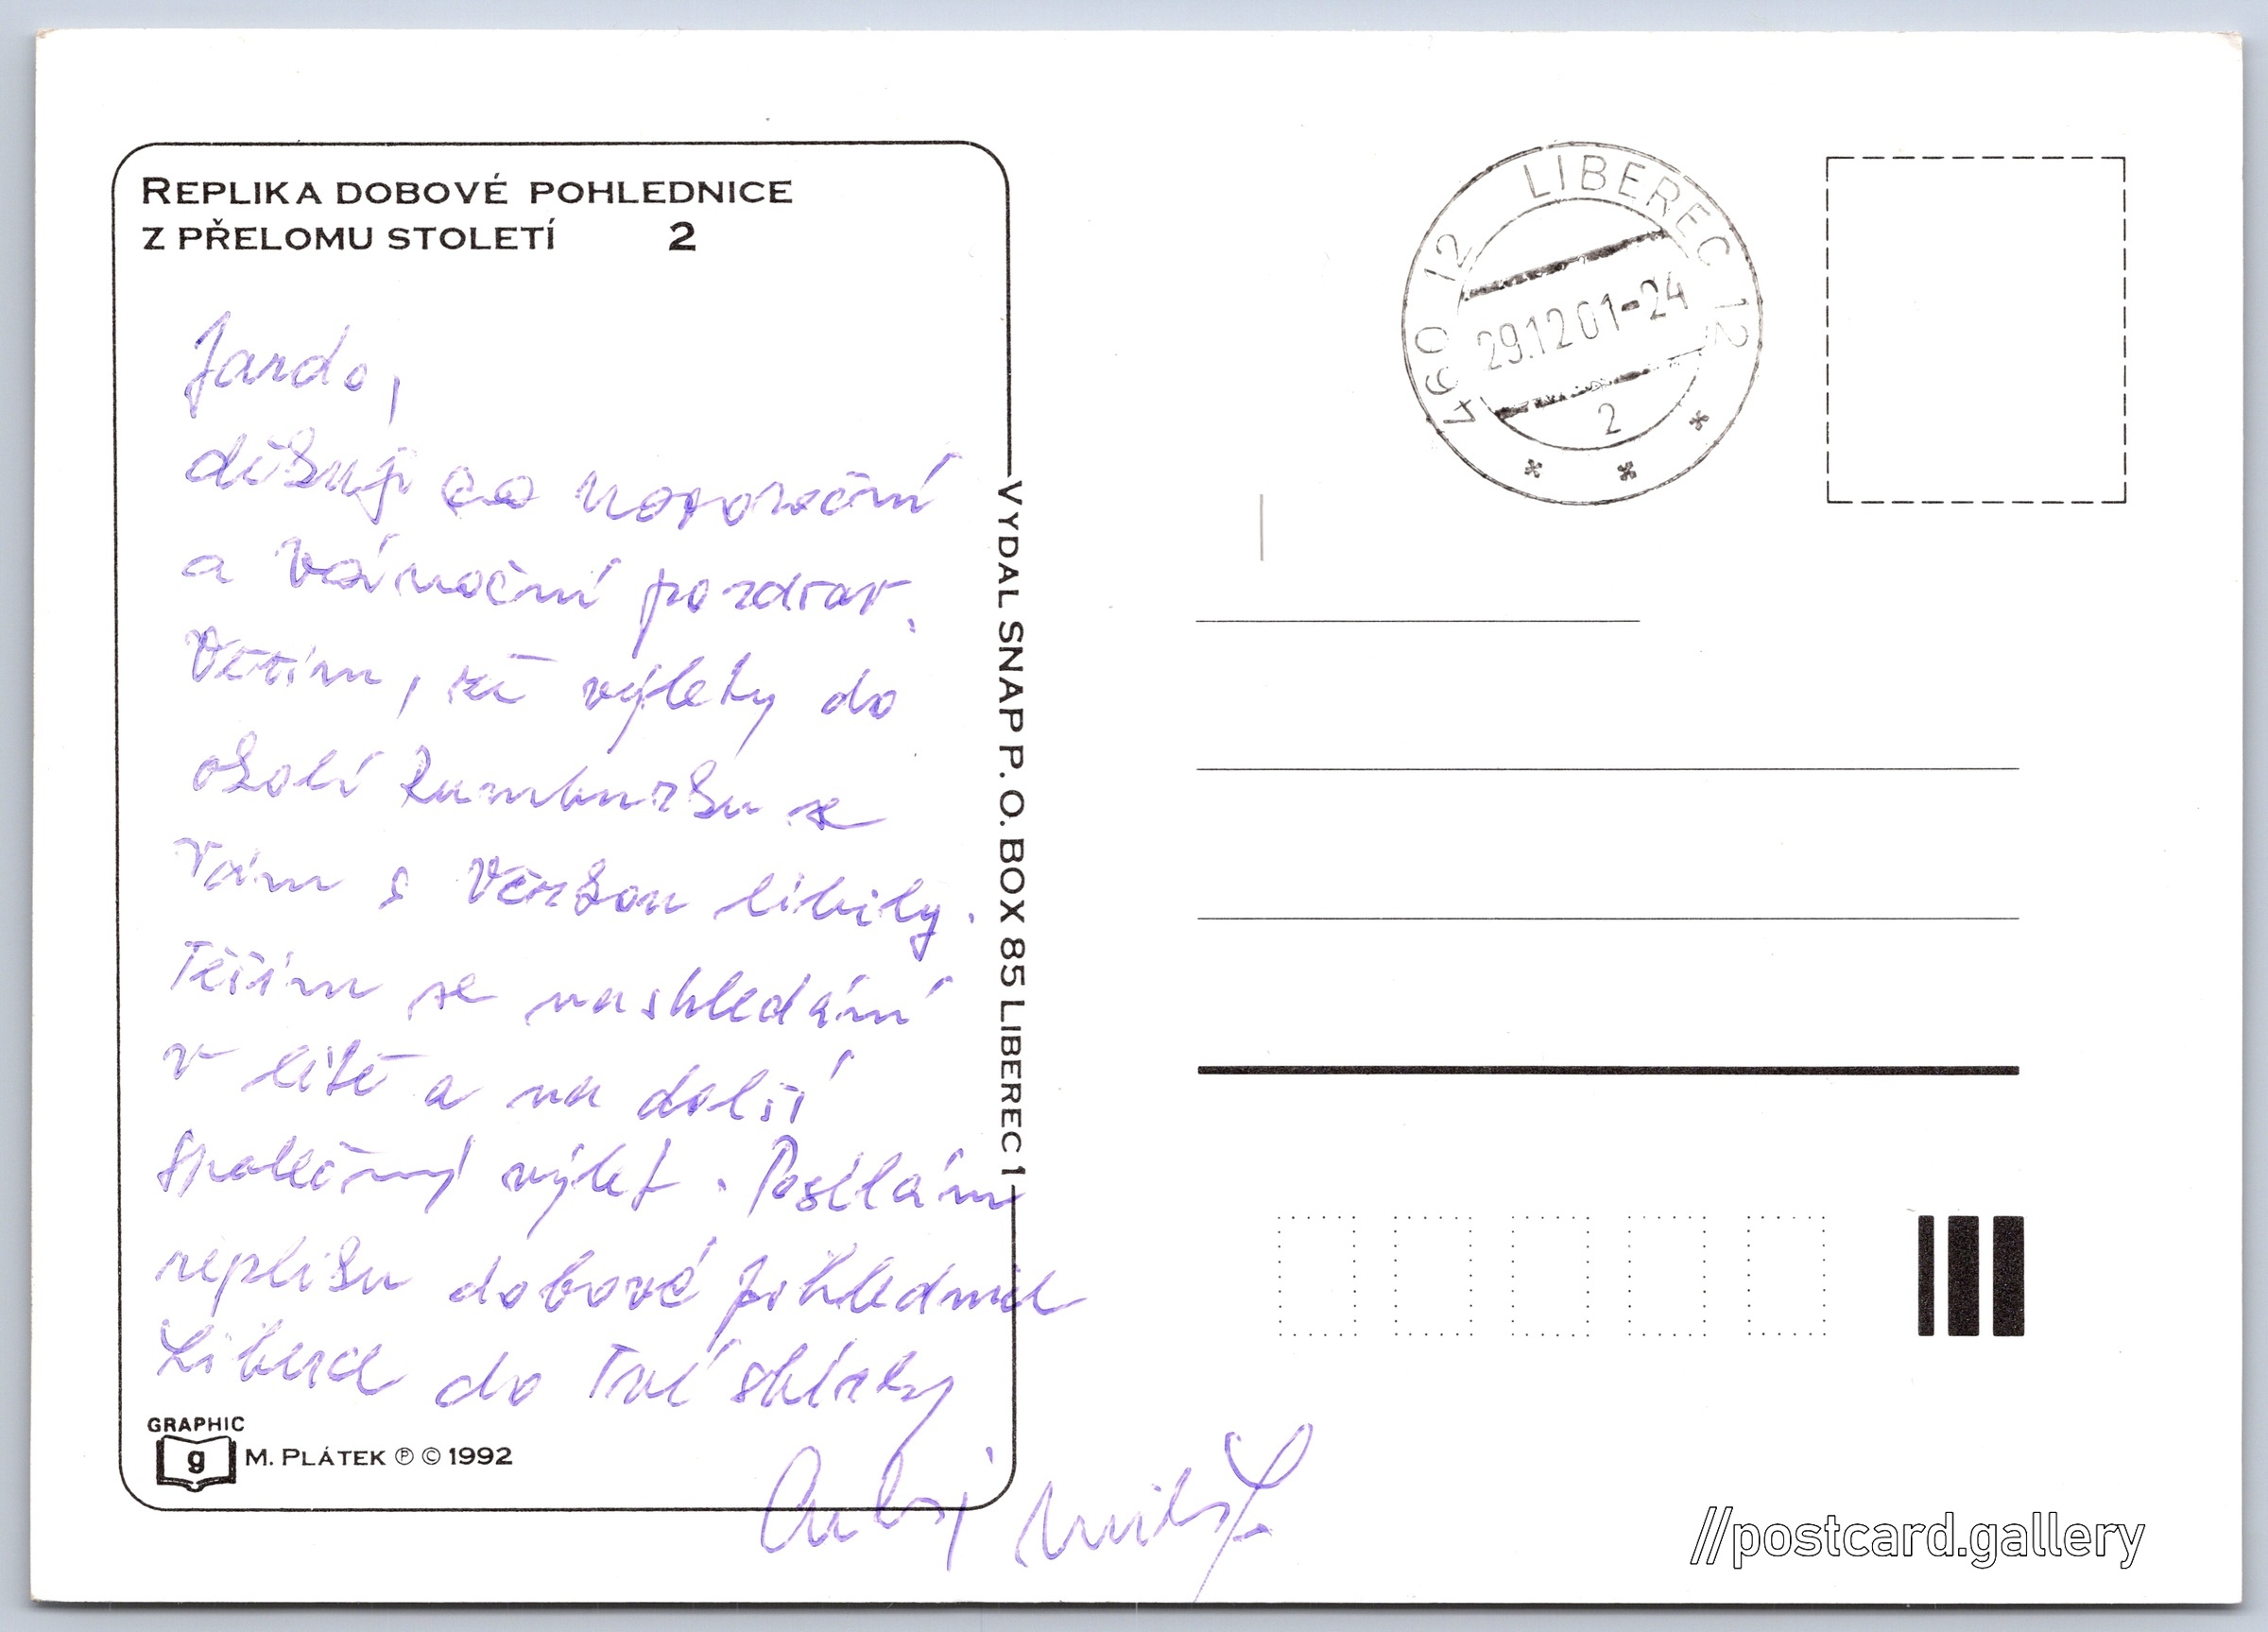 REPLIKA DOBOVÉ POHLEDNICE
Z PŘELOMU STOLETÍ 2
Jardo,
děkuji za novoroční
a vánoční pozdrav.
Věřím, že výlety do
okolí Rumburku se
Vám s Věrkou líbily.
Těším se nashledání
v létě a na další
společný výlet. Posílám
repliku dobové pohlednice
Liberce do Tvé sbírky
GRAPHIC
g
M. PLÁTEK ℗ © 1992
VYDAL SNAP P. O. BOX 85 LIBEREC 1
460 12 LIBEREC 12
29.12.01-24
2
//postcard.gallery